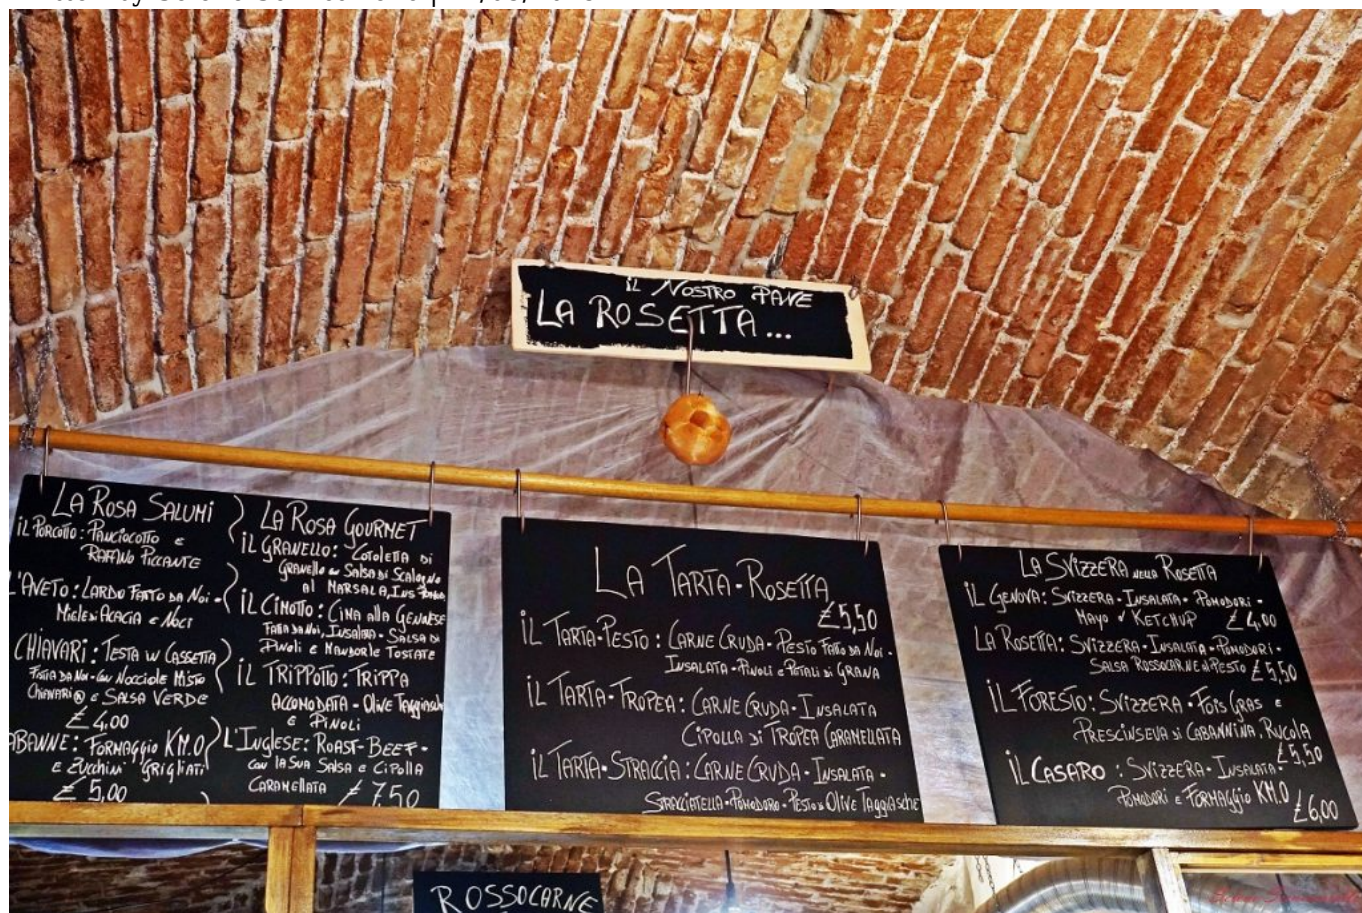 IL NOSTRO PANE
LA ROSETTA...
LA ROSA SALUMI
IL PORCOTTO: PANCIOCOTTO E
RAFFINO PICCANTE
L'AVETO: LARDO FATTO DA NOI -
MIELE DI ACACIA E NOCI
CHIAVARI: TESTA IN CASSETTA
FATTA DA NOI - CON NOCCIOLE MISTO
CHIAVARI ® E SALSA VERDE
£ 4,00
ABANNE: FORMAGGIO KM.0
E ZUCCHINI GRIGLIATI
£ 5,00
LA ROSA GOURMET
IL GRANELLO: COTOLETTA DI
GRANELLO SALSA DI SCALOGNO
AL MARSALA, INS
IL CIMOTTO: CIMA ALLA GENOVESE
FATTA DA NOI, INSALATA - SALSA DI
PINOLI E MANDORLE TOSTATE
IL TRIPPOTTO: TRIPPA
ACCOMODATA - OLIVE TAGGIASCHE
E PINOLI
L'INGLESE: ROAST-BEEF -
CON LA SUA SALSA E CIPOLLA
CARAMELLATA £ 7,50
LA TARTA-ROSETTA
£ 5,50
IL TARTA-PESTO: CARNE CRUDA - PESTO FATTO DA NOI -
INSALATA - PINOLI E PETALI DI GRANA
IL TARTA-TROPEA: CARNE CRUDA - INSALATA
CIPOLLA DI TROPEA CARAMELLATA
IL TARTA-STRACCIA: CARNE CRUDA - INSALATA -
STRACCIATELLA - POMODORO - PESTO DI OLIVE TAGGIASCHE
LA SVIZZERA NELLA ROSETTA
IL GENOVA: SVIZZERA - INSALATA - POMODORI -
MAYO O KETCHUP £ 4,00
LA ROSETTA: SVIZZERA - INSALATA - POMODORI -
SALSA ROSSOCARNE AL PESTO £ 5,50
IL FORESTO: SVIZZERA - FOIS GRAS E
PRESCINSEUA DI CABANNINA, RUCOLA
£ 5,50
IL CASARO: SVIZZERA - INSALATA -
POMODORI E FORMAGGIO KM.0 £ 6,00
ROSSOCARNE